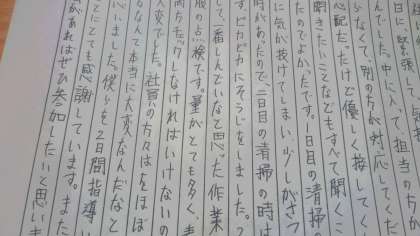 日に緊張して、
んでした。中に入って、担当の方
らなくて、別の方が対応してくだ
心配だ。だけど優しく接して
聞きたいことなどもすべて聞くこ
たのでよかったです。1日目の清掃
に気が抜けてしまい少しがさつ
時があったので、二日目の清掃の時は
すピカピカにそうじをしました。2
して、一番しんどいなと思った作業
服の点検です。量がとても多く、
両方 しなければいけないの
大変でした。社員の方々は ほぼ
るなんて本当に大変なんだなと
いました。僕らを2日間指導し
てにとても感謝しています。また
があればぜひ参加したいと思いま